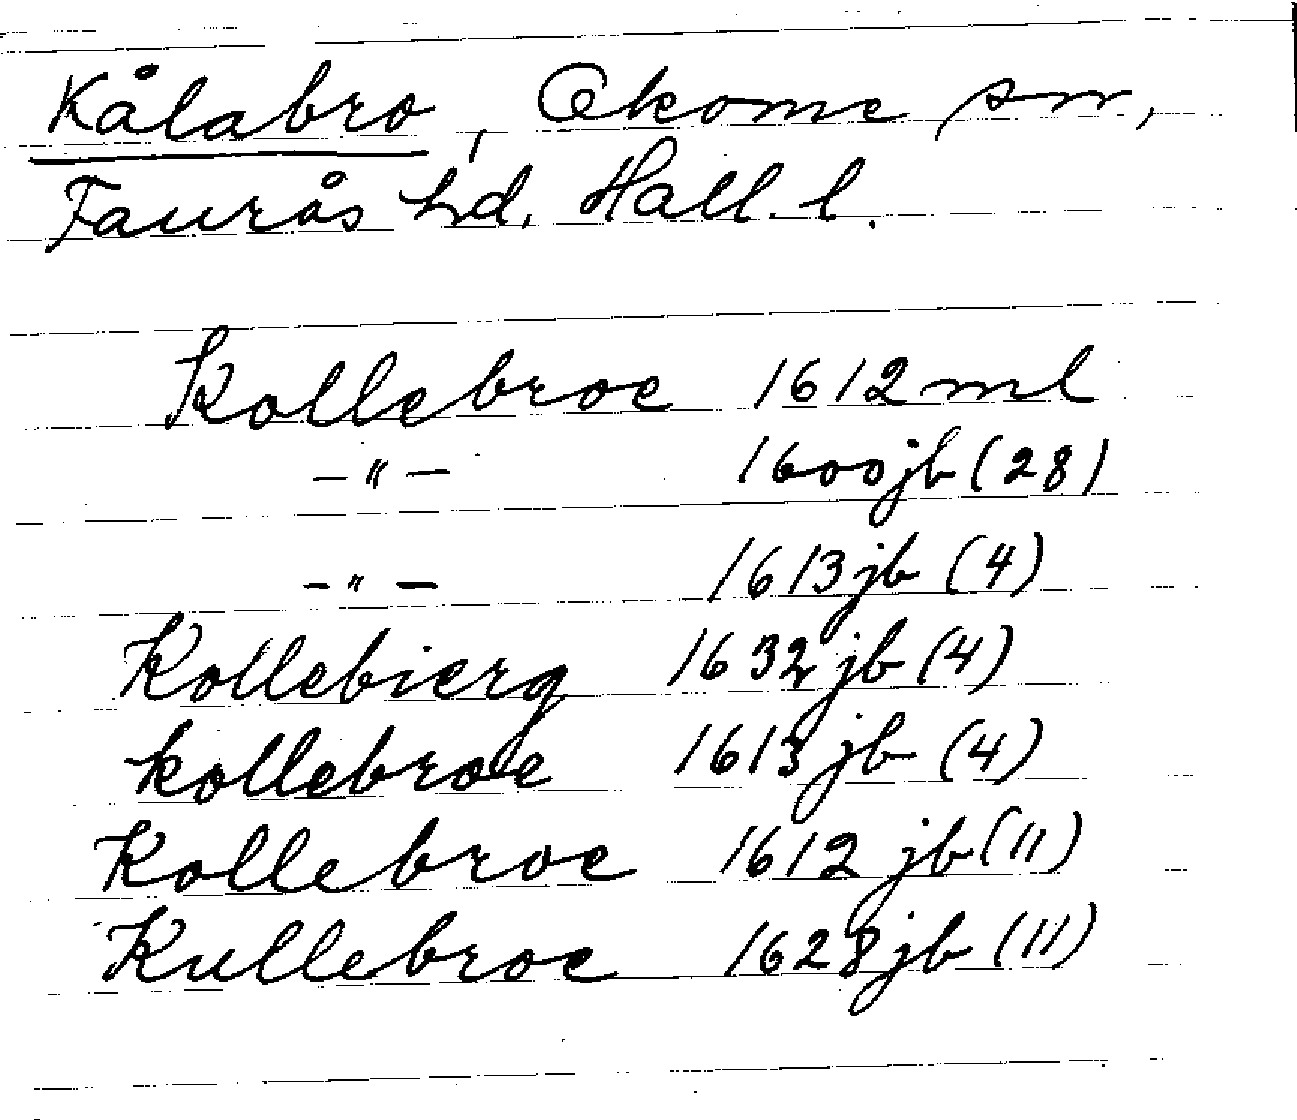 Kålabro, Okome sn,
Faurås hd. Hall. l.
Kollebroe 1612 ml
–"– 1600 jb (28)
–"– 1613 jb (4)
Kollebierg 1632 jb (4)
kollebroe 1613 jb (4)
Kollebroe 1612 jb (11)
Kullebroe 1628 jb (11)